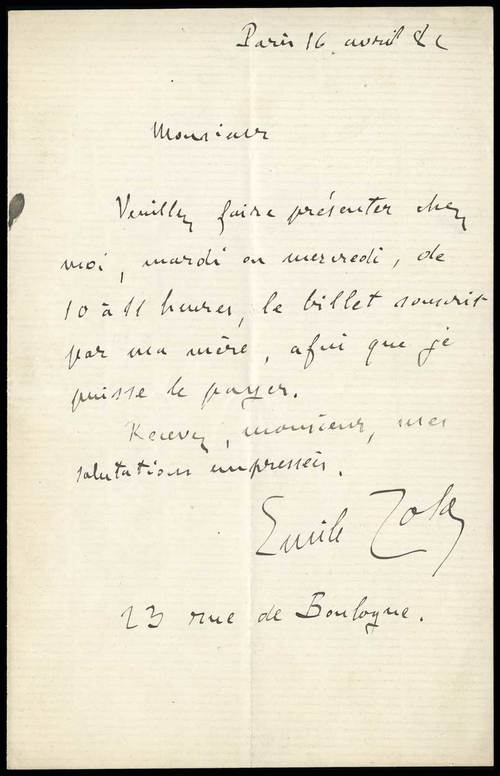 Paris 16 avril 82
Monsieur
Veuillez faire présenter chez
moi, mardi ou mercredi, de
10 à 11 heures, le billet souscrit
par ma mère, afin que je
puisse le payer.
Recevez, monsieur, mes
salutations empressées.
Emile Zola
23 rue de Boulogne.